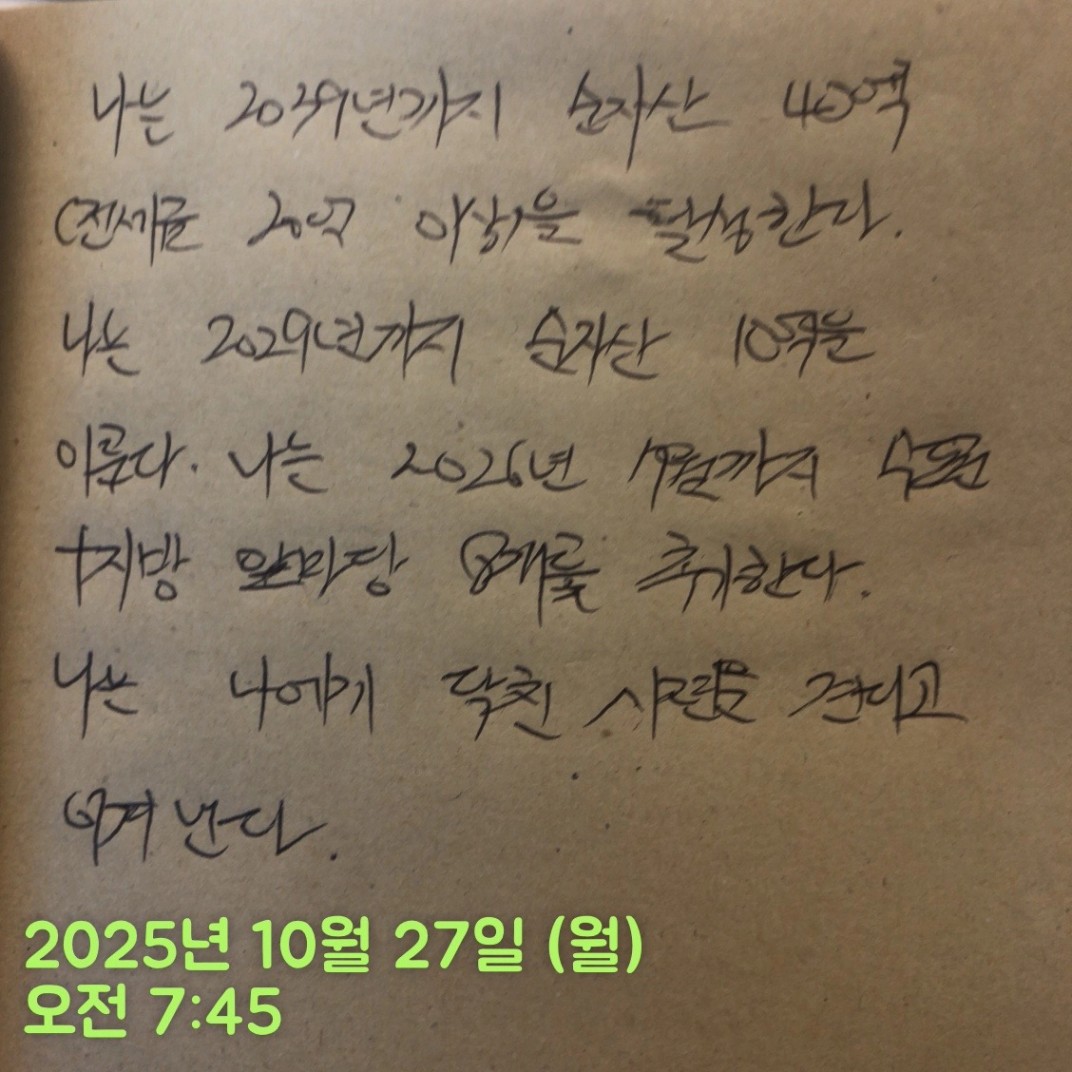 나는 2039년까지 순자산 40억
(전세금 20억 이상)을 달성한다.
나는 2029년까지 순자산 10억을
이룬다. 나는 2026년 까지 수도권
+지방 앞마당 8개를 취한다.
나는 나에게 닥친 시련을 견디고
이겨 낸다.
2025년 10월 27일 (월)
오전 7:45